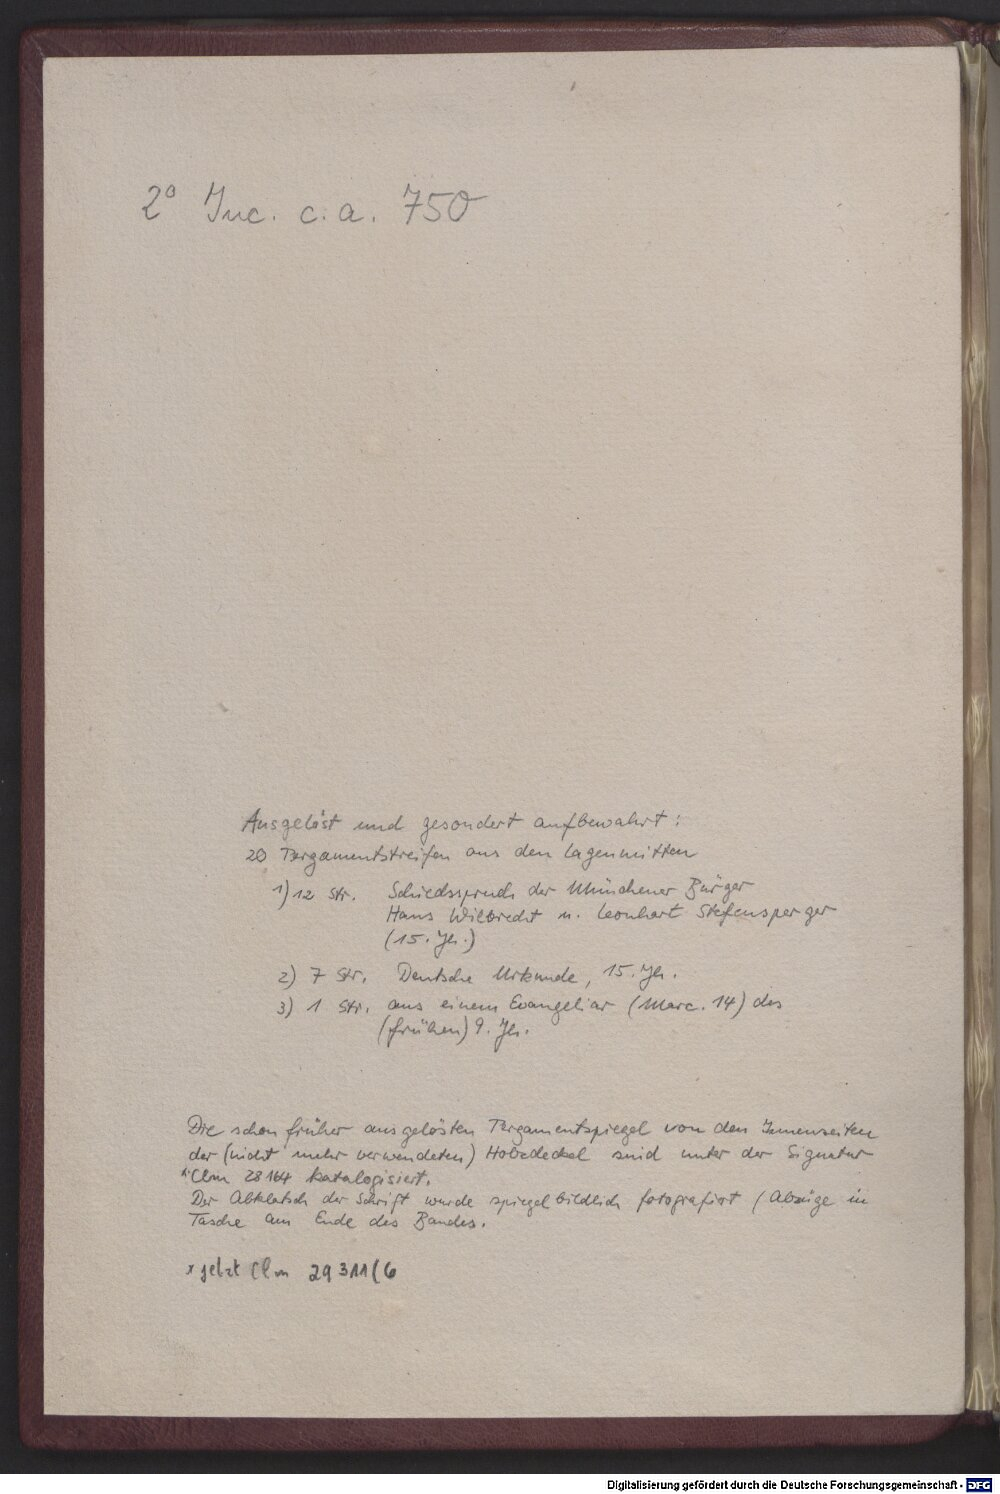 2° Inc. c. a. 750
Ausgelöst und gesondert aufbewahrt:
20 Pergamentstreifen aus den Lagenmitten
1) 12 Str. Schiedsspruch der Münchener Bürger
Hans Wilbrecht u. Leonhart Stefensperger
(15. Jh.)
2) 7 Str. Deutsche Urkunde, 15. Jh.
3) 1 Str. aus einem Evangeliar (Marc. 14) des
(frühen) 9. Jh.
Die schon früher ausgelösten Pergamentspiegel von den Innenseiten
der (nicht mehr verwendeten) Holzdeckel sind unter der Signatur
*Clm 28164 katalogisiert.
Der Abklatsch der Schrift wurde spiegelbildlich fotografiert / Abzüge in
Tasche am Ende des Bandes.
* jetzt Clm 29311(6
Digitalisierung gefördert durch die Deutsche Forschungsgemeinschaft - DFG